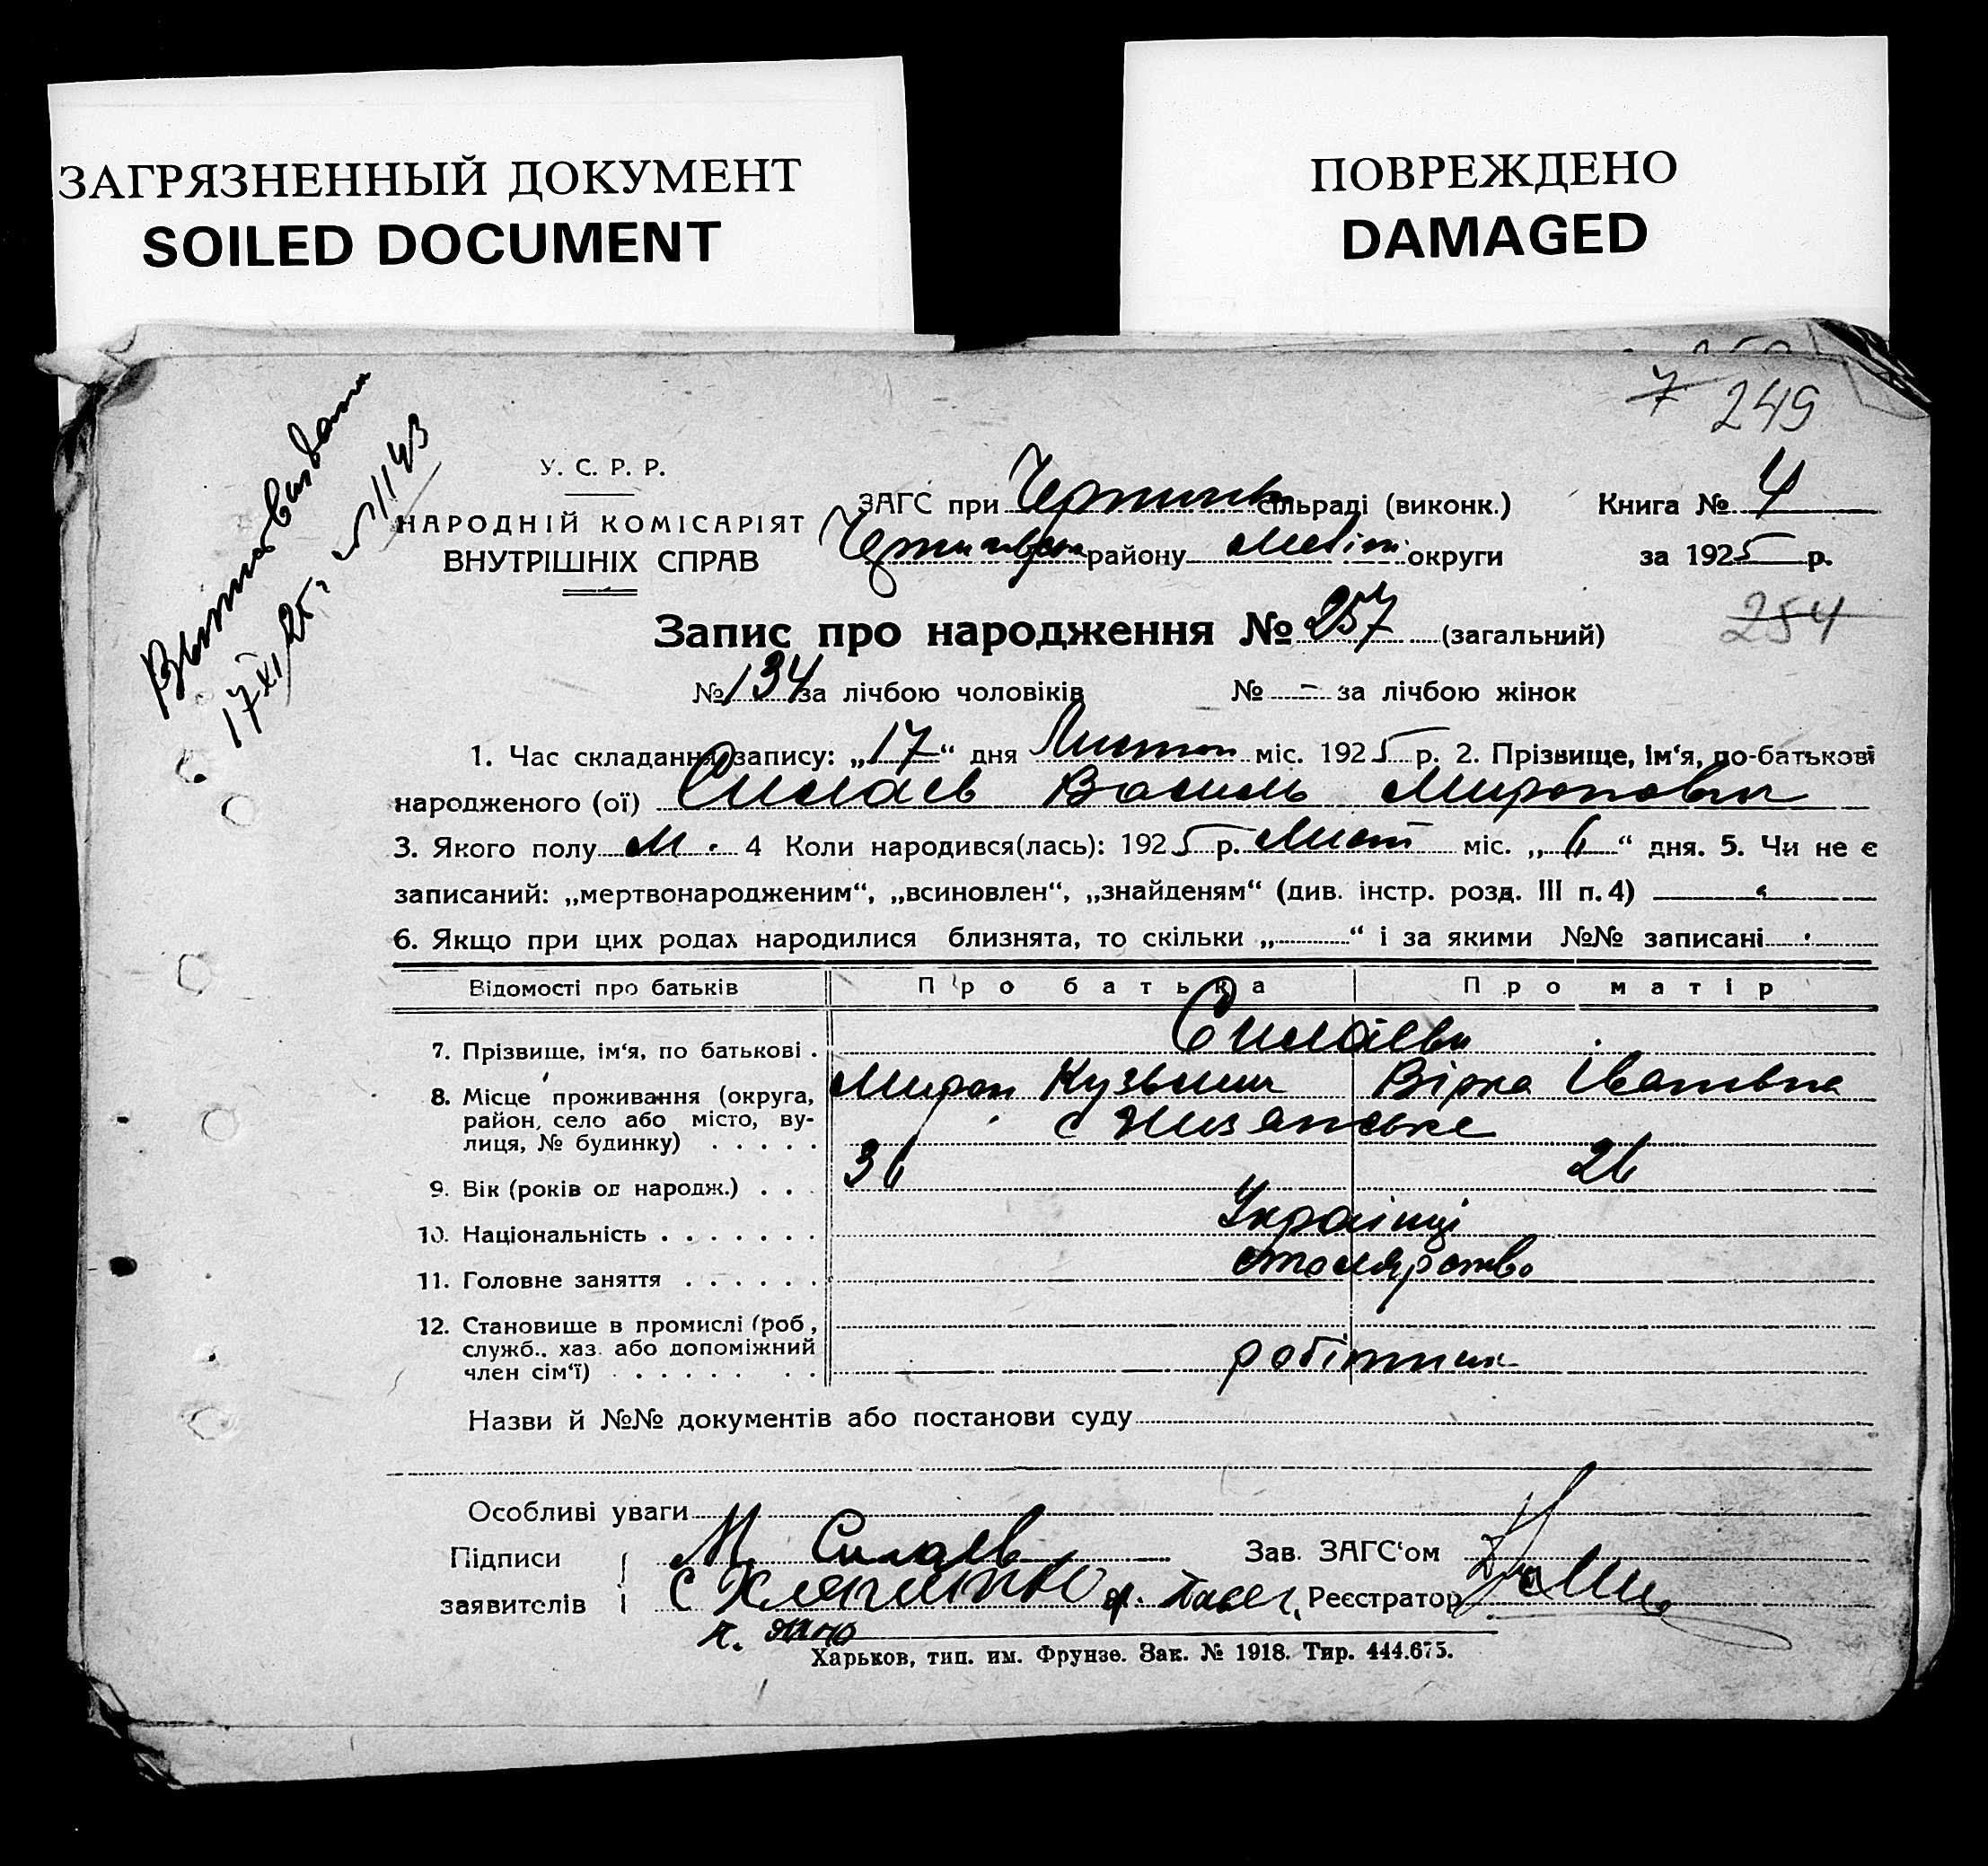 ЗАГРЯЗНЕННЫЙ ДОКУМЕНТ
SOILED DOCUMENT
ПОВРЕЖДЕНО
DAMAGED
7 249
17 XI 25
У. С. Р. Р.
НАРОДНІЙ КОМІСАРІЯТ
ВНУТРІШНІХ СПРАВ
ЗАГС при сільраді (виконк.) Книга № 4
району округи за 1925 р.
Запис про народження № 257 (загальний) 254
№ 134 за лічбою чоловіків № - за лічбою жінок
1. Час складання запису: „17“ дня Листоп міс. 1925 р. 2. Прізвище, ім‘я, по-батькові
народженого (ої) Силаев Василь Миронович
3. Якого полу М. 4 Коли народився(лась): 1925 р. Лист міс. „6“ дня. 5. Чи не є
записаний: „мертвонародженим“, „всиновлен“, „знайденям“ (див. інстр. розд. III п. 4)
6. Якщо при цих родах народилися близнята, то скільки „ “ і за якими №№ записані
Відомості про батьків Про батька Про матір
7. Прізвище, ім‘я, по батькові . Силаєви
Мирон Кузьмич Вірка Івановна
8. Місце проживання (округа,
район, село або місто, ву-
лиця, № будинку) . . . . . с
9. Вік (років од народж.) . . . 36 26
10. Національність . . . . . . . Українці
11. Головне заняття . . . . . . столярство
12. Становище в промислі (роб.,
служб., хаз. або допоміжний
член сім‘ї) . . . . . . . . робітник
Назви й №№ документів або постанови суду
Особливі уваги
Підписи М Силаев Зав. ЗАГС‘ом
заявителів С Реєстратор
Харьков, тип. им. Фрунзе. Зак. № 1918. Тир. 444.675.